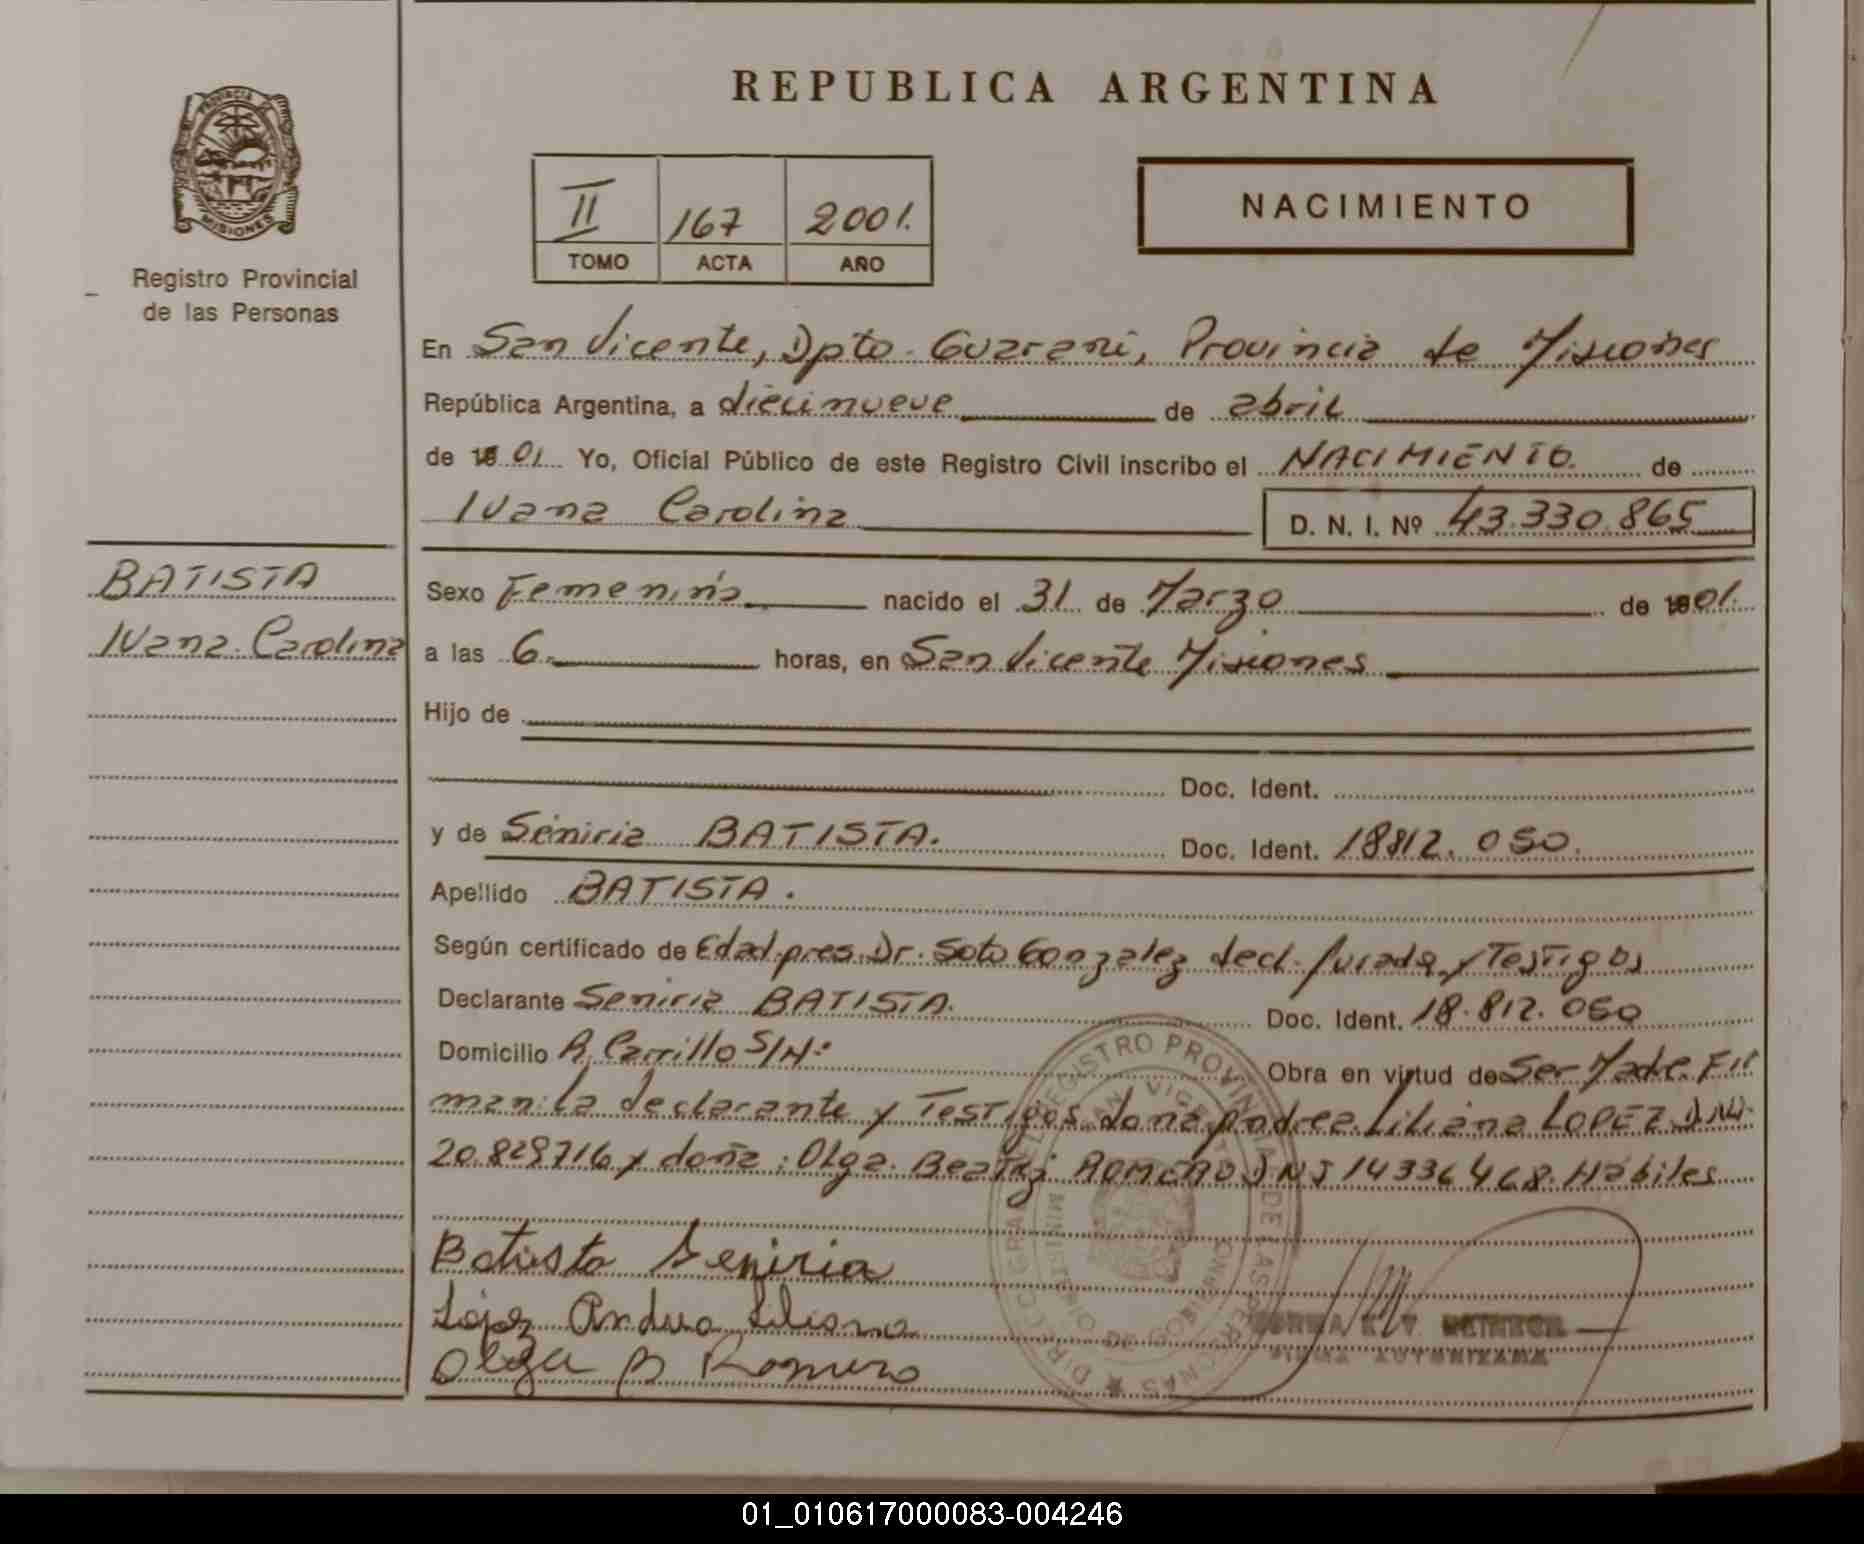 PROVINCIA DE
MISIONES
Registro Provincial
de las Personas
BATISTA
Ivana Carolina
REPUBLICA ARGENTINA
II 167 2001.
TOMO ACTA AÑO
NACIMIENTO
En San Vicente, Dpto. Guaraní, Provincia de Misiones
República Argentina, a diecinueve de abril
de 01 Yo, Oficial Público de este Registro Civil inscribo el NACIMIENTO. de
Ivana Carolina D. N. I. Nº 43.330.865
Sexo Femenino nacido el 31 de Marzo de 01.
a las 6 horas, en San Vicente Misiones
Hijo de
Doc. Ident.
y de Seniria BATISTA. Doc. Ident. 18812.050.
Apellido BATISTA.
Según certificado de Edad pres. Dr. Soto Gonzalez decl. jurada y Testigos
Declarante Seniria BATISTA. Doc. Ident. 18.812.050
Domicilio R. Carrillo S/Nº Obra en virtud de Ser Madre. Fir
man: la declarante y Testigos doña Andrea Liliana LOPEZ D.N.I.
20.829716 y doña: Olga Beatriz ROMERO DNI 14336468. Hábiles
Batista Seniria
López Andrea Liliana
Olga B Romero
DIRECC. GRAL. REGISTRO PROVINCIAL DE LAS PERSONAS
SAN VICENTE
MINISTERIO DE GOBIERNO
FIRMA AUTORIZADA
01_010617000083-004246